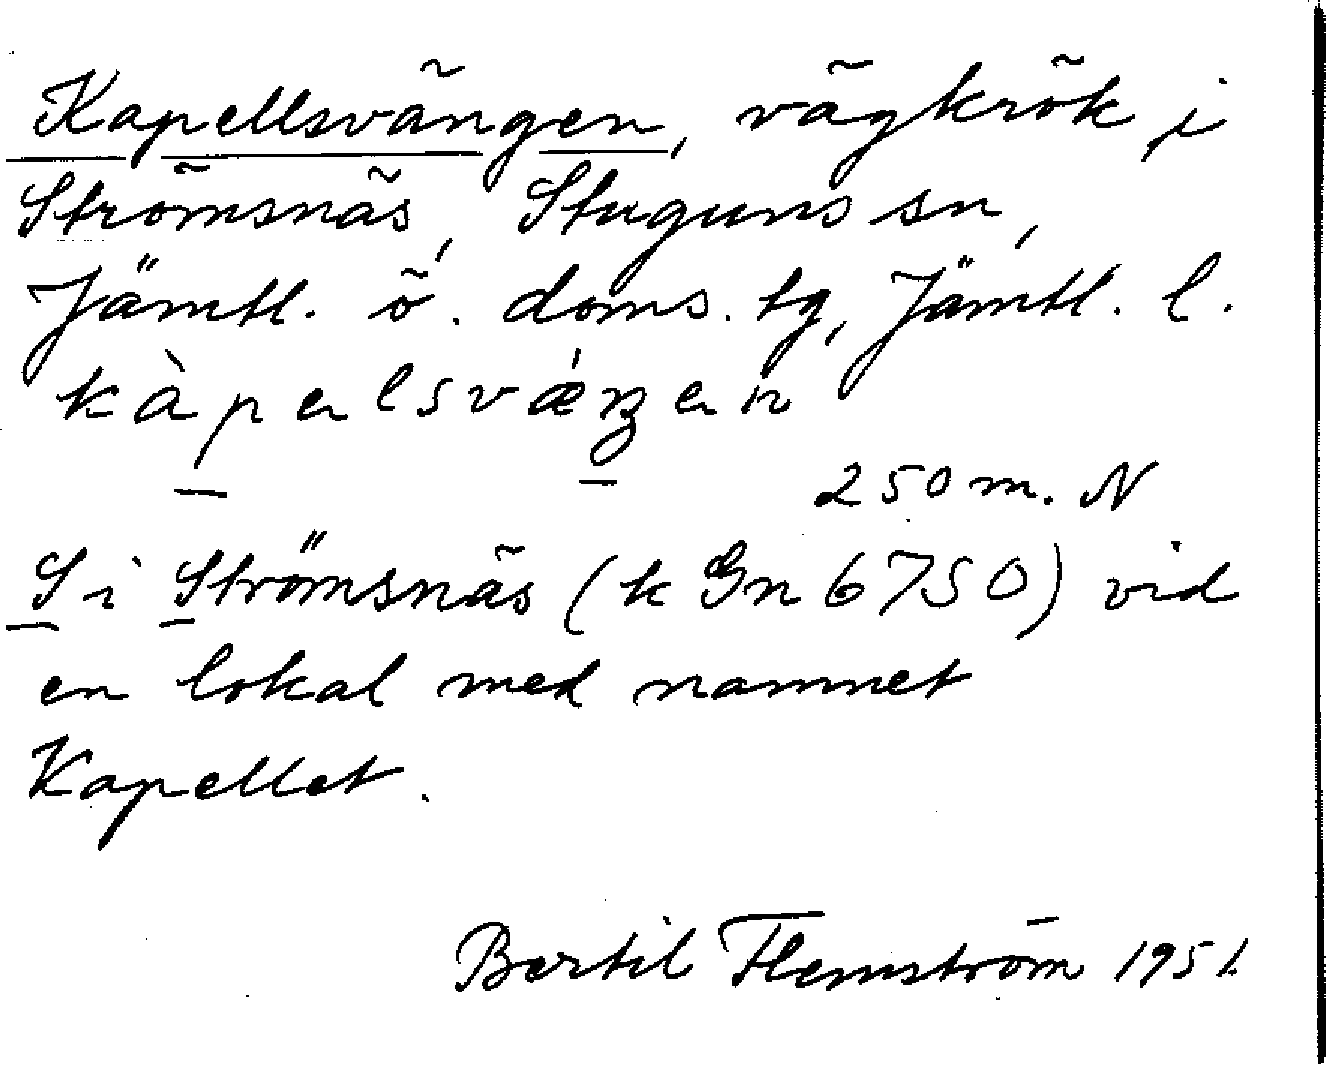 Kapellsvängen, vägkrök i
Strömsnäs, Stuguns sn,
Jämtl. ö. doms. tg, Jämtl. l.
kàpelsvǽŋen
250 m. N
S i Strömsnäs (k Gn 6750) vid
en lokal med namnet
Kapellet.
Bertil Flemström 1951.